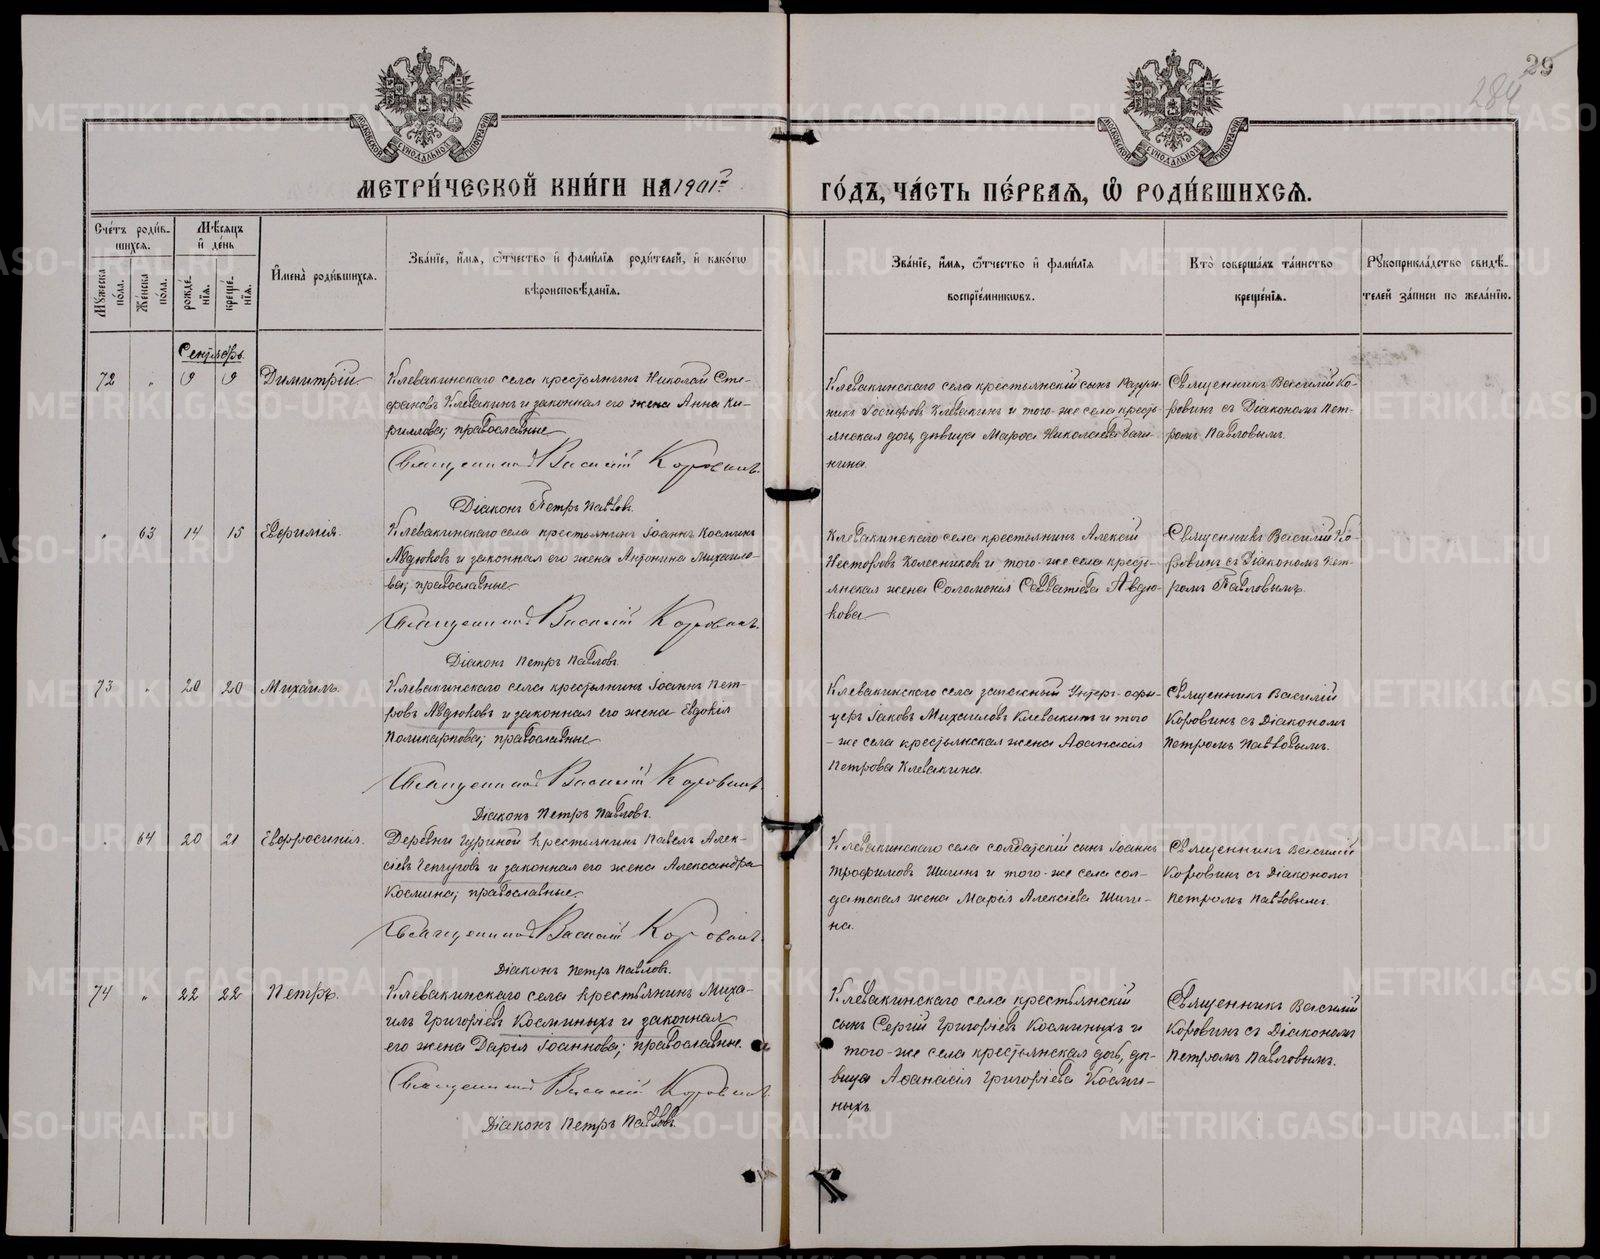 29
284
МЕТРИ́ЧЕСКОЙ КНИ́ГИ НА 1901 ГО́ДЪ, ЧА́СТЬ ПЕ́РВАЯ, Ѡ РОДИ́ВШИХСЯ.
Сче́тъ роди́в-
шихся.
Мѣ́сяцъ
и де́нь
Мꙋ́жеска
по́ла.
Же́нска
по́ла.
рожде́-
нїя.
креще́-
нїя.
Имена̀ роди́вшихся.
Зва́нїе, и́мя, ѻ́тчество и фами́лїя роди́телей, и како́гѡ
вѣроисповѣ́данїя.
Зва́нїе, и́мя, ѻ́тчество и фами́лїя
воспрїе́мникѡвъ.
Кто̀ соверша́лъ та́инство
креще́нїя.
Рꙋкоприкла́дство свидѣ́-
телей за́писи по жела́нїю.
Сентябрь.
72 " 9 9 Димитрій
Клевакинскаго села крестьянинъ Николай Сте-
фановъ Клевакинъ и законная его жена Анна Ки-
риллова; православные
Священникъ Василій Коровинъ.
Діаконъ Петръ Павловъ.
Клевакинскаго села крестьянскій сынъ
Іосифовъ Клевакинъ и того-же села кресть-
янская дочь, дѣвица Марѳа Николаева
нина.
Священникъ Василій Ко-
ровинъ съ Діакономъ Пет-
ромъ Павловымъ.
" 63 14 15 Евфимія.
Клевакинскаго села крестьянинъ Іоаннъ Косминъ
Авдюковъ и законная его жена Антонина Михаило-
ва; православные
Священникъ Василій Коровинъ.
Діаконъ Петръ Павловъ.
Клевакинскаго села крестьянинъ Алексій
Несторовъ Колесниковъ и того-же села кресть-
янская жена Соломонія Савватіева Авдю-
кова
Священникъ Василій Ко-
ровинъ съ Діакономъ Пет-
ромъ Павловымъ.
73 " 20 20 Михаилъ.
Клевакинскаго села крестьянинъ Іоаннъ Пет-
ровъ Авдюковъ и законная его жена Евдокія
Поликарпова; православные
Священникъ Василій Коровинъ.
Діаконъ Петръ Павловъ.
Клевакинскаго села запасный Унтеръ-офи-
церъ Іаковъ Михаиловъ Клевакинъ и того
-же села крестьянская жена Аѳанасія
Петрова Клевакина.
Священникъ Василій
Коровинъ съ Діакономъ
Петромъ Павловымъ.
" 64 20 21 Евфросинія.
Деревни Гуриной крестьянинъ Павелъ Алек-
сіевъ Чепчуговъ и законная его жена Александра
Космина; православные.
Священникъ Василій Коровинъ.
Діаконъ Петръ Павловъ.
Клевакинскаго села солдатскій сынъ Іоаннъ
Трофимовъ Шигинъ и того-же села сол-
датская жена Марія Алексіева Шиги-
на.
Священникъ Василій
Коровинъ съ Діакономъ
Петромъ Павловымъ.
74 " 22 22 Петръ.
Клевакинскаго села крестьянинъ Миха-
илъ Григоріевъ Косминыхъ и законная
его жена Дарія Іоаннова; православные.
Священникъ Василій Коровинъ.
Діаконъ Петръ Павловъ.
Клевакинскаго села крестьянскій
сынъ Сергій Григоріевъ Косминыхъ и
того-же села крестьянская дочь, дѣ-
вица Аѳанасія Григоріева Косми-
ныхъ.
Священникъ Василій
Коровинъ съ Діакономъ
Петромъ Павловымъ.
METRIKI.GASO-URAL.RU